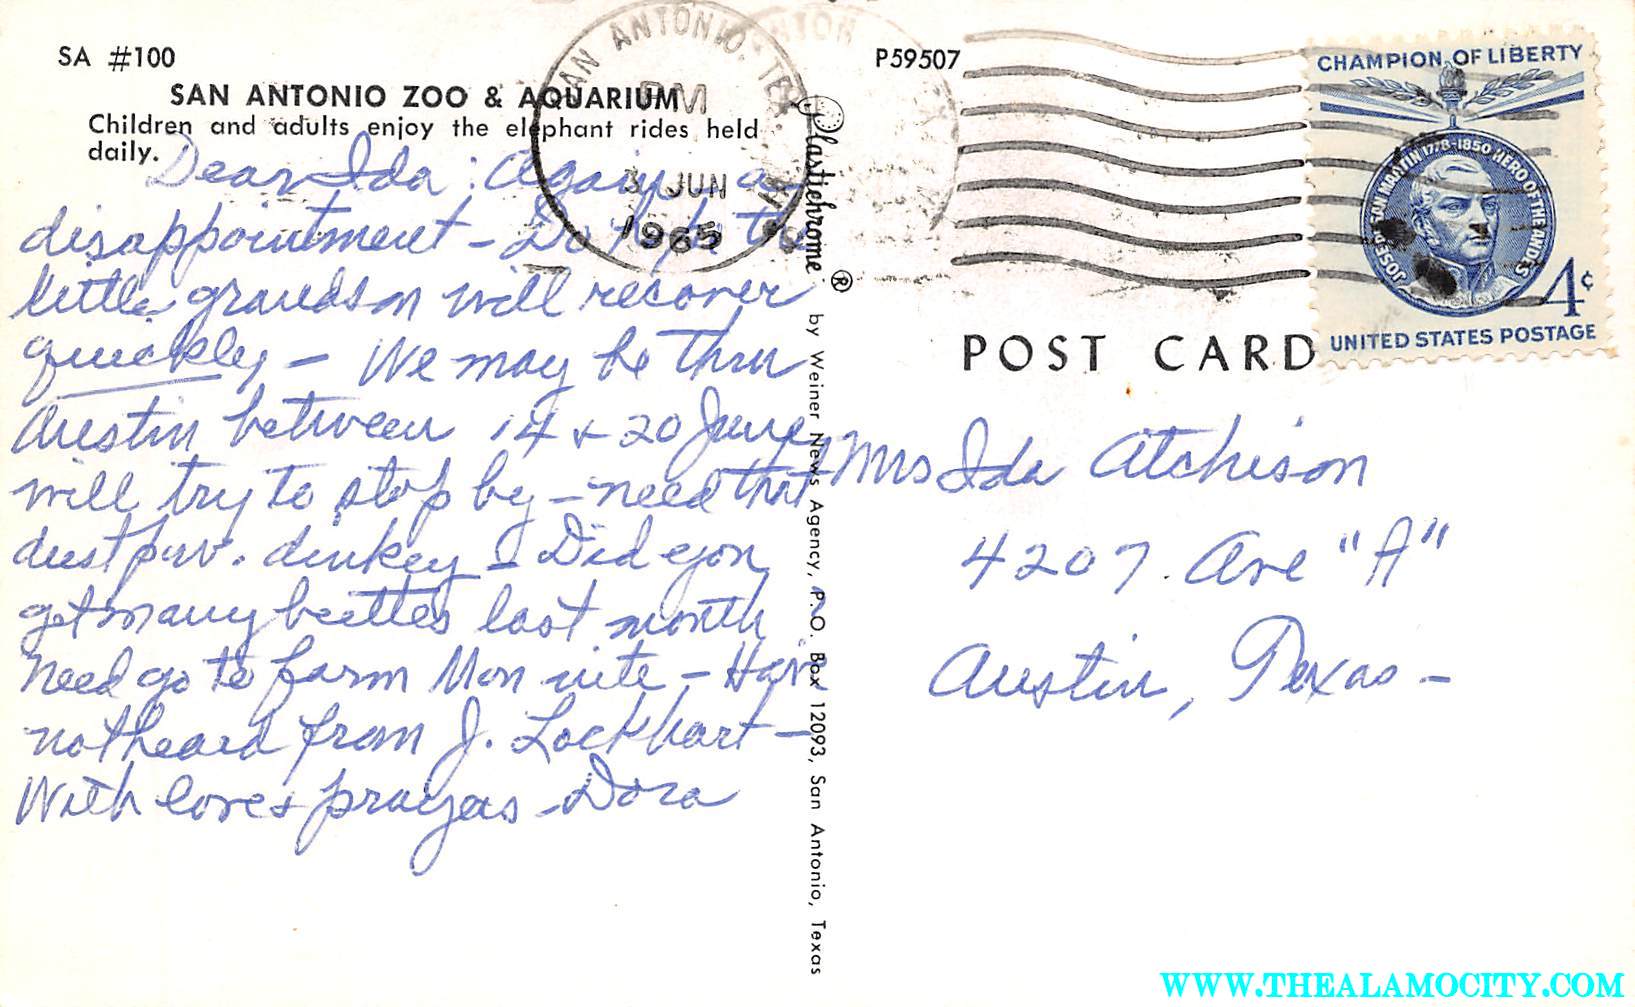 SA #100
SAN ANTONIO ZOO & AQUARIUM
Children and adults enjoy the elephant rides held
daily.
Dear Ida: Again a
disappointment – Do hope the
little grandson will recover
quickly – We may be thru
Austin between 14 & 20 June,
will try to stop by – need that
dinkey – Did you
get many beetles last month
Need go to farm Mon nite – Have
not heard from J. Lockhart –
With love & prayers – Dora
Plastichrome ® by Weiner News Agency, P.O. Box 12093, San Antonio, Texas
SAN ANTONIO, TEX.
PM
3 JUN
1965
P59507
CHAMPION OF LIBERTY
JOSE DE SAN MARTIN 1778-1850 HERO OF THE ANDES
4¢
UNITED STATES POSTAGE
POST CARD
Mrs Ida Atchison
4207 Ave "A"
Austin, Texas –
WWW.THEALAMOCITY.COM